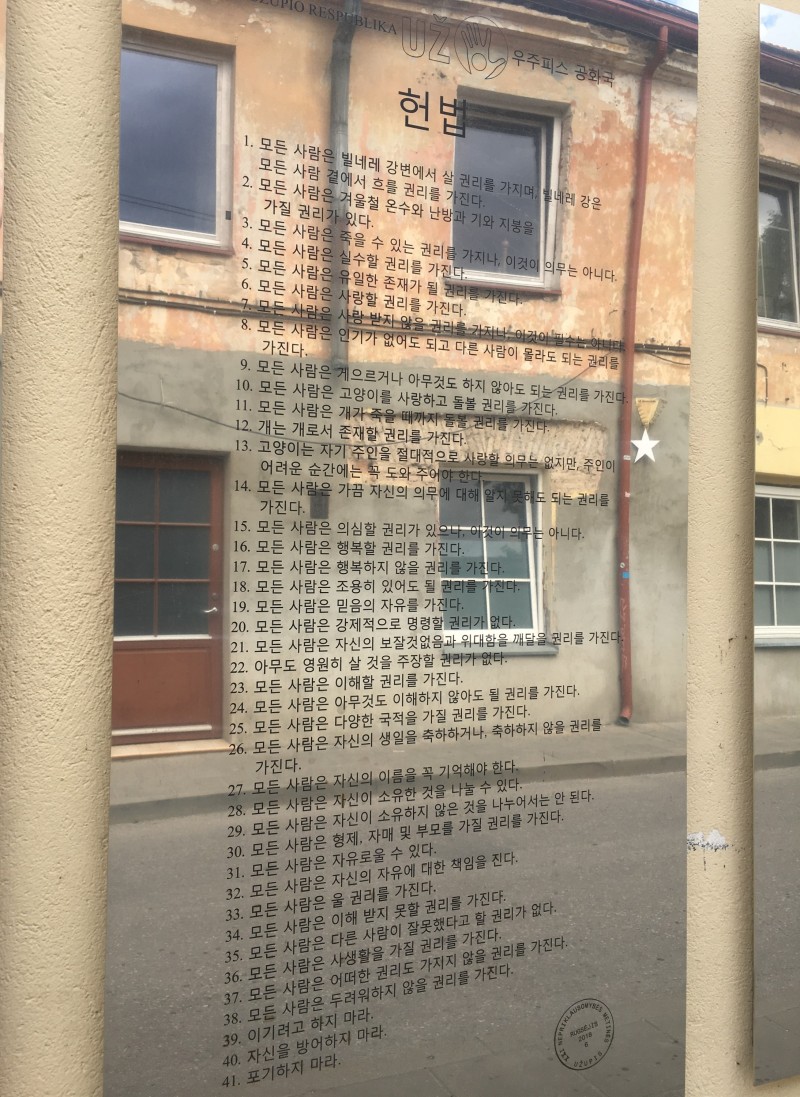 UŽUPIO RESPUBLIKA UŽ 우주피스 공화국
헌법
1. 모든 사람은 빌네레 강변에서 살 권리를 가지며, 빌네레 강은
모든 사람 곁에서 흐를 권리를 가진다.
2. 모든 사람은 겨울철 온수와 난방과 기와 지붕을
가질 권리가 있다.
3. 모든 사람은 죽을 수 있는 권리를 가지나, 이것이 의무는 아니다.
4. 모든 사람은 실수할 권리를 가진다.
5. 모든 사람은 유일한 존재가 될 권리를 가진다.
6. 모든 사람은 사랑할 권리를 가진다.
7. 모든 사람은 사랑 받지 않을 권리를 가지나, 이것이 필수는 아니다.
8. 모든 사람은 인기가 없어도 되고 다른 사람이 몰라도 되는 권리를
가진다.
9. 모든 사람은 게으르거나 아무것도 하지 않아도 되는 권리를 가진다.
10. 모든 사람은 고양이를 사랑하고 돌볼 권리를 가진다.
11. 모든 사람은 개가 죽을 때까지 돌볼 권리를 가진다.
12. 개는 개로서 존재할 권리를 가진다.
13. 고양이는 자기 주인을 절대적으로 사랑할 의무는 없지만, 주인이
어려운 순간에는 꼭 도와 주어야 한다.
14. 모든 사람은 가끔 자신의 의무에 대해 알지 못해도 되는 권리를
가진다.
15. 모든 사람은 의심할 권리가 있으나, 이것이 의무는 아니다.
16. 모든 사람은 행복할 권리를 가진다.
17. 모든 사람은 행복하지 않을 권리를 가진다.
18. 모든 사람은 조용히 있어도 될 권리를 가진다.
19. 모든 사람은 믿음의 자유를 가진다.
20. 모든 사람은 강제적으로 명령할 권리가 없다.
21. 모든 사람은 자신의 보잘것없음과 위대함을 깨달을 권리를 가진다.
22. 아무도 영원히 살 것을 주장할 권리가 없다.
23. 모든 사람은 이해할 권리를 가진다.
24. 모든 사람은 아무것도 이해하지 않아도 될 권리를 가진다.
25. 모든 사람은 다양한 국적을 가질 권리를 가진다.
26. 모든 사람은 자신의 생일을 축하하거나, 축하하지 않을 권리를
가진다.
27. 모든 사람은 자신의 이름을 꼭 기억해야 한다.
28. 모든 사람은 자신이 소유한 것을 나눌 수 있다.
29. 모든 사람은 자신이 소유하지 않은 것을 나누어서는 안 된다.
30. 모든 사람은 형제, 자매 및 부모를 가질 권리를 가진다.
31. 모든 사람은 자유로울 수 있다.
32. 모든 사람은 자신의 자유에 대한 책임을 진다.
33. 모든 사람은 울 권리를 가진다.
34. 모든 사람은 이해 받지 못할 권리를 가진다.
35. 모든 사람은 다른 사람이 잘못했다고 할 권리가 없다.
36. 모든 사람은 사생활을 가질 권리를 가진다.
37. 모든 사람은 어떠한 권리도 가지지 않을 권리를 가진다.
38. 모든 사람은 두려워하지 않을 권리를 가진다.
39. 이기려고 하지 마라.
40. 자신을 방어하지 마라.
41. 포기하지 마라.
XXI NEPRIKLAUSOMYBĖS METINĖS
RUGSĖJIS
2018